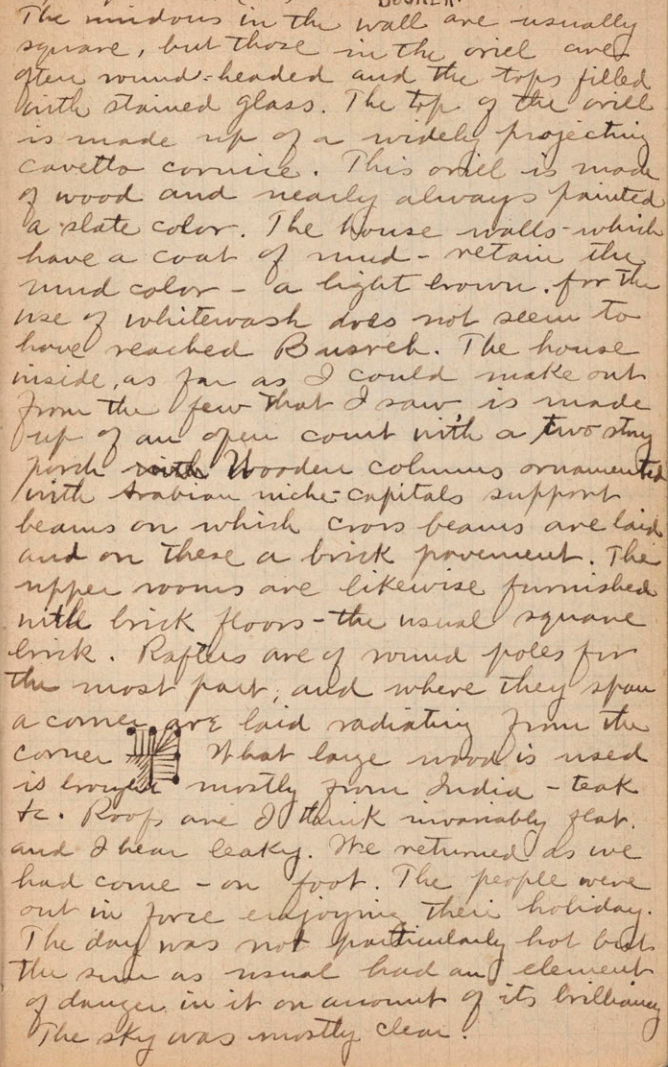 The windows in the wall are usually
square, but those in the oriel are
often round-headed and the tops filled
with stained glass. The top of the oriel
is made up of a widely projecting
cavetto cornice. This oriel is made
of wood and nearly always painted
a slate color. The house walls - which
have a coat of mud - retain the
mud color - a light brown. for the
use of whitewash does not seem to
have reached Busreh. The house
inside, as far as I could make out
from the few that I saw, is made
up of an open court with a two story
porch with Wooden columns ornamented
with Arabian niche-capitals support
beams on which cross beams are laid
and on these a brick pavement. The
upper rooms are likewise furnished
with brick floors - the usual square
brick. Rafters are of round poles for
the most part, and where they span
a corner are laid radiating from the
corner What large wood is used
is brought mostly from India - teak
&c. Roofs are I think invariably flat.
and I hear leaky. We returned as we
had come - on foot. The people were
out in force enjoying their holiday.
The day was not particularly hot but
the sun as usual had an element
of danger in it on account of its brilliancy
The sky was mostly clear.